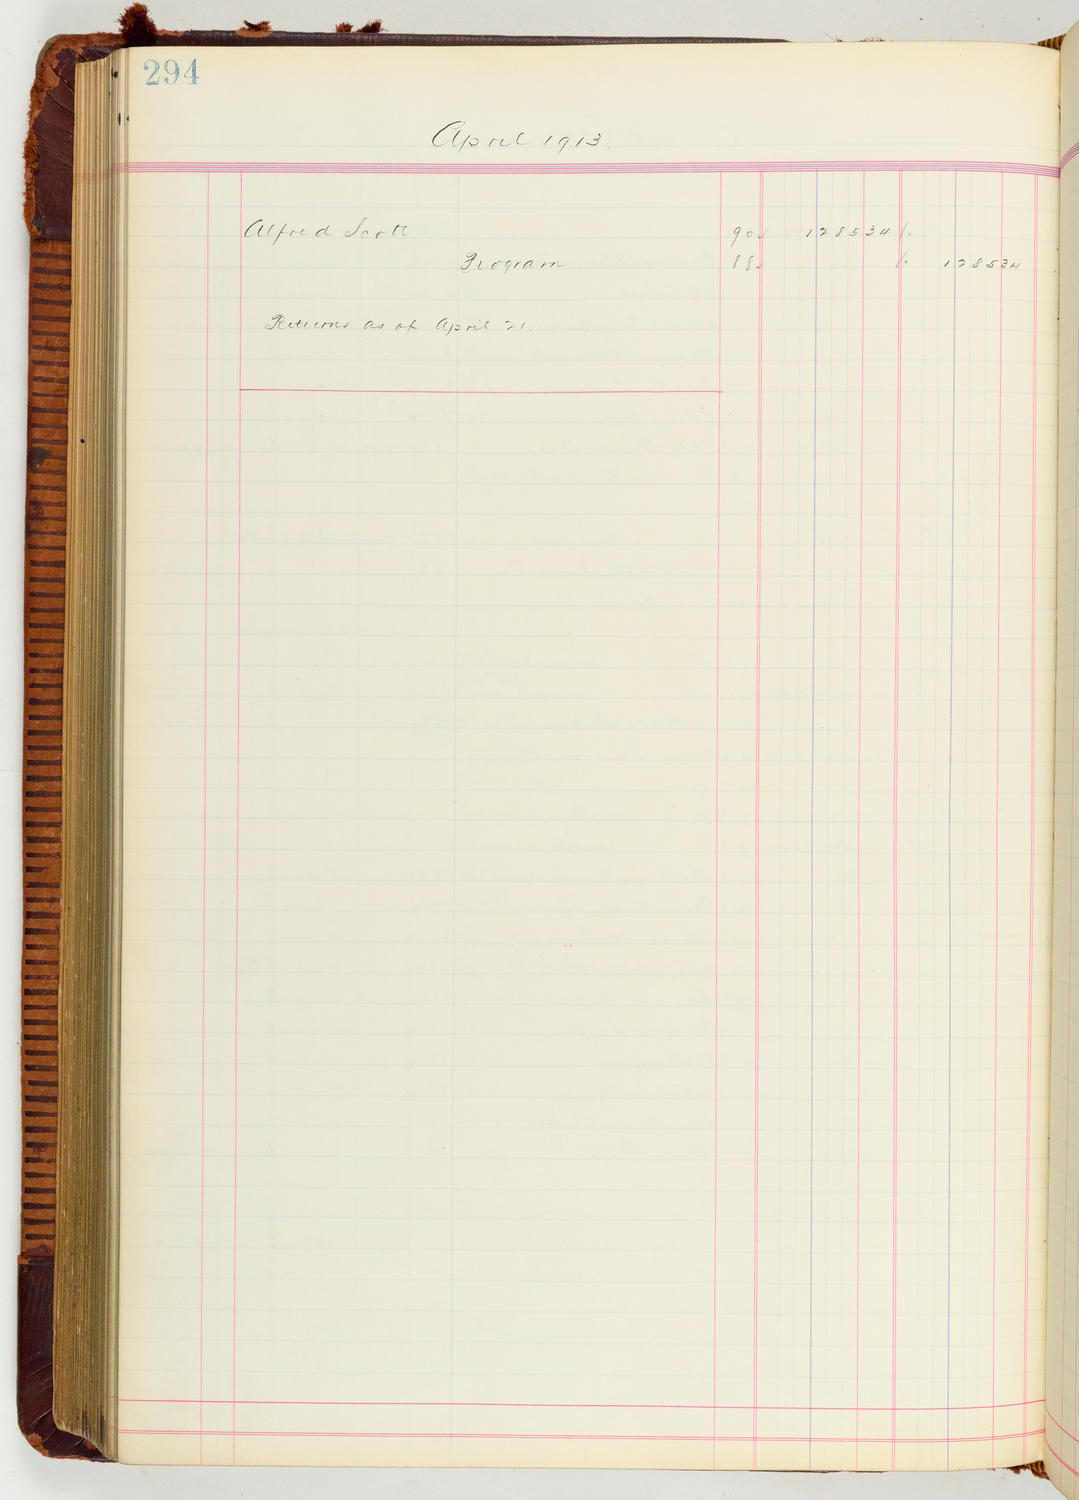 294
April 1913.
Alfred Scott 90 128534
Program 128534
Returns as of April 21.